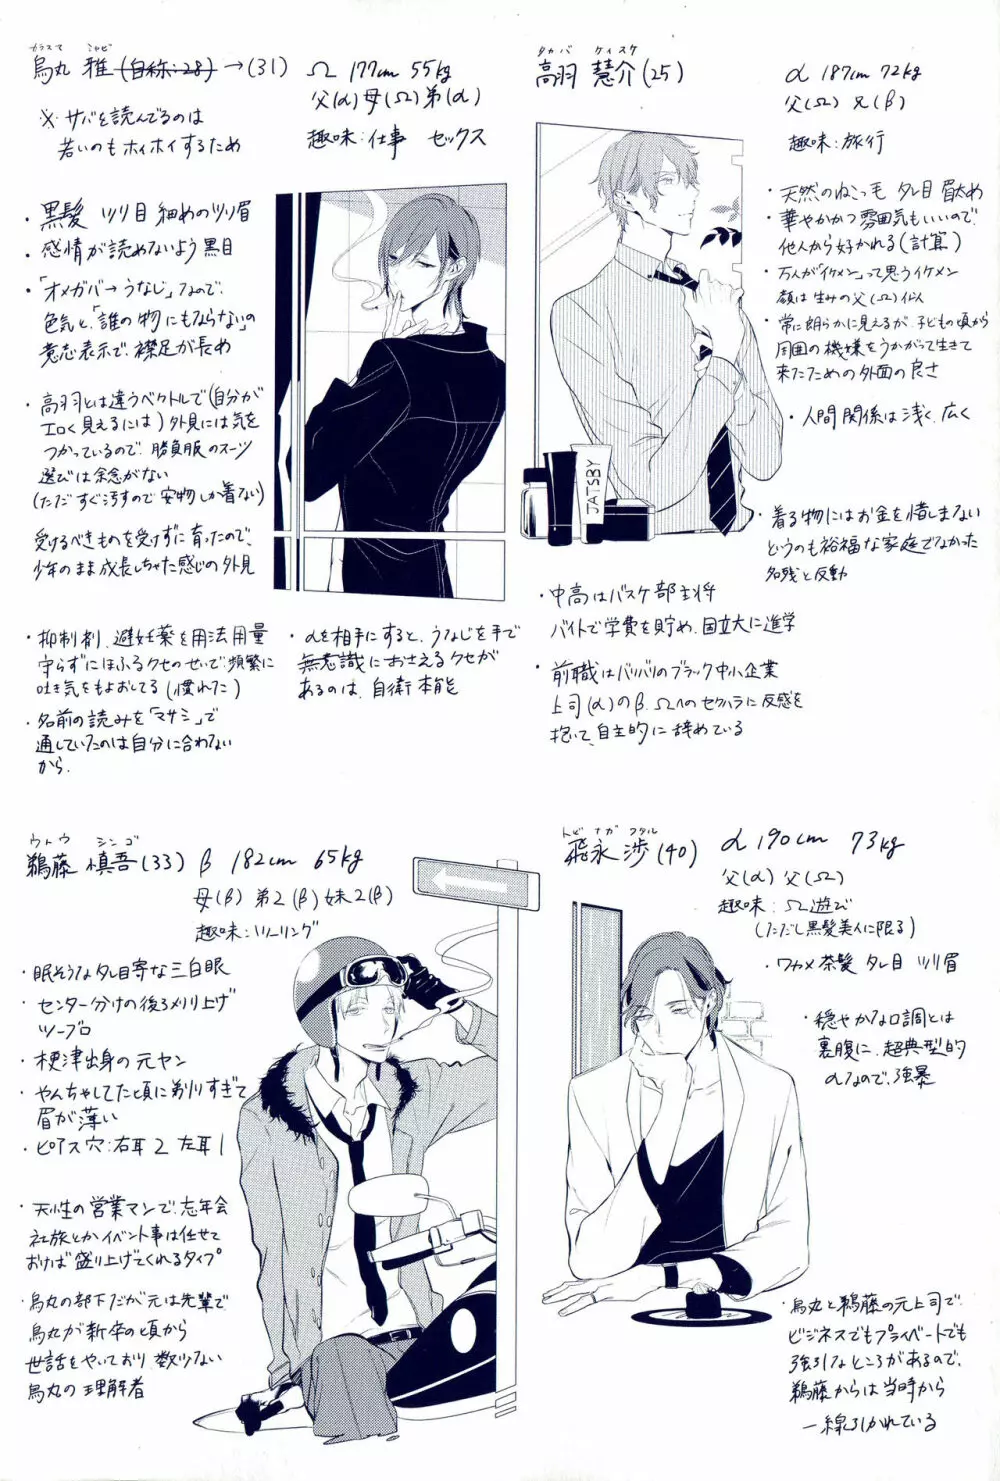 カラスマ シャビ
烏丸 雅 (自称:28) →(31)
Ω 177cm 55kg
父(α)母(Ω)弟(α)
趣味:仕事 セックス
※サバを読んでるのは
若いのもホイホイするため
・黒髪 ツリ目 細めのツリ眉
・感情が読めないよう黒目
・「オメガバ→うなじ」なので、
色気と、「誰の物にもならない」の
意志表示で、襟足が長め
・高羽とは違うベクトルで(自分が
エロく見えるには)外見には気を
つかっているので、勝負服のスーツ
選びは余念がない
(ただすぐ汚すので安物しか着ない)
受けるべきものを受けずに育ったので、
少年のまま成長しちゃった感じの外見
・抑制剤、避妊薬を用法用量
守らずにほふるクセのせいで、頻繁に
吐き気をもよおしてる(慣れた)
・名前の読みを「マサシ」で
通していたのは自分に合わない
から。
・αを相手にすると、うなじを手で
無意識におさえるクセが
あるのは、自衛本能
タカバ ケイスケ
高羽 慧介(25)
α 187cm 72kg
父(Ω) 兄(β)
趣味:旅行
・天然のねこっ毛 タレ目 眉太め
・華やかかつ雰囲気もいいので、
他人から好かれる(計算)
・万人が「イケメン」って思うイケメン
顔は生みの父(Ω)似
・常に朗らかに見えるが、子どもの頃から
周囲の機嫌をうかがって生きて
来たための外面の良さ
・人間関係は浅く広く
・着る物にはお金を惜しまない
というのも裕福な家庭でなかった
名残と反動
JATSBY
・中高はバスケ部主将
バイトで学費を貯め、国立大に進学
・前職はバリバリのブラック中小企業
上司(α)のβ、Ωへのセクハラに反感を
抱いて、自主的に辞めている
ウトウ シンゴ
鵜藤 慎吾(33) β 182cm 65kg
母(β) 弟2(β)妹2(β)
趣味:ツーリング
・眠そうなタレ目寄な三白眼
・センター分けの後ろメリ上げ
ツーブロ
・木更津出身の元ヤン
・やんちゃしてた頃に剃りすぎて
眉が薄い
・ピアス穴:右耳2 左耳1
・天性の営業マンで、忘年会
社旅とかイベント事は任せて
おけば盛り上げてくれるタイプ
・烏丸の部下だが元は先輩で
烏丸が新卒の頃から
世話をやいており、数少ない
烏丸の理解者
トビナガ ワタル
飛永 渉(40) α 190cm 73kg
父(α) 父(Ω)
趣味:Ω遊び
(ただし黒髪美人に限る)
・ワカメ茶髪 タレ目 ツリ眉
・穏やかな口調とは
裏腹に、超典型的
αなので、強暴
・烏丸と鵜藤の元上司で、
ビジネスでもプライベートでも
強引なところがあるので、
鵜藤からは当時から
一線引かれている